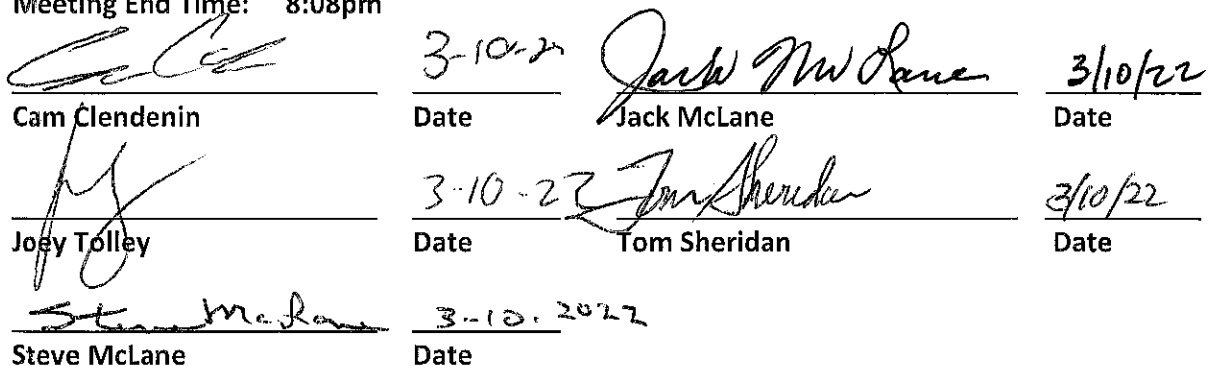 Meeting End Time: 8:08pm
3-10-2 Jack McLane 3/10/22
Cam Clendenin Date Jack McLane Date
3-10-22 Tom Sheridan 3/10/22
Joey Tolley Date Tom Sheridan Date
Steve McLane 3-10.2022
Steve McLane Date